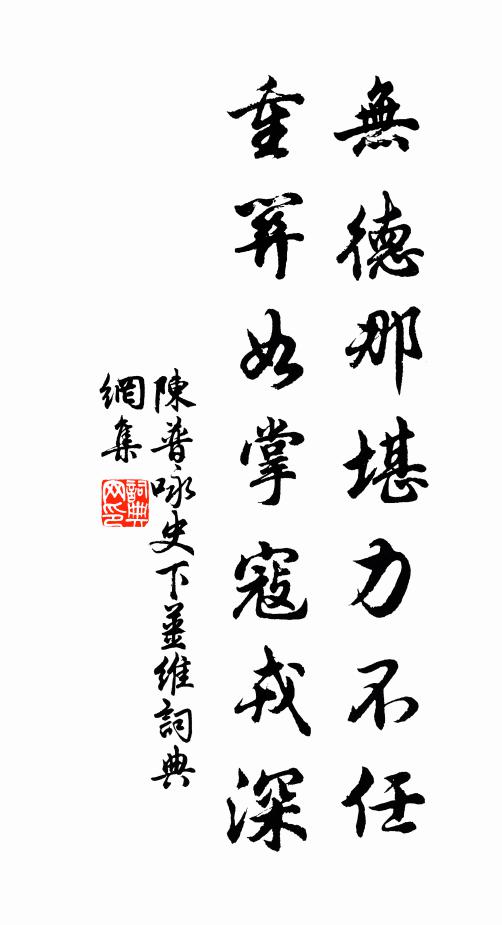 無德那堪力不任
重關如掌寇戎深
陳普咏史下姜維詞典
網集
詞典
网印